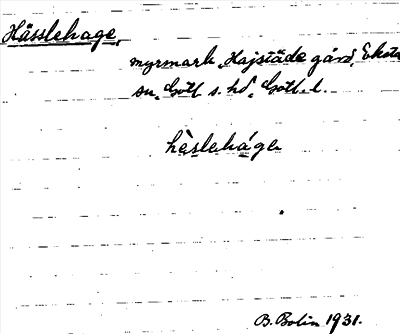 Hässlehage,
myrmark, Hajstäde gård, Eksta
sn, Gotl s. hd, Gotl. l.
hèslehága
B. Bolin 1931.